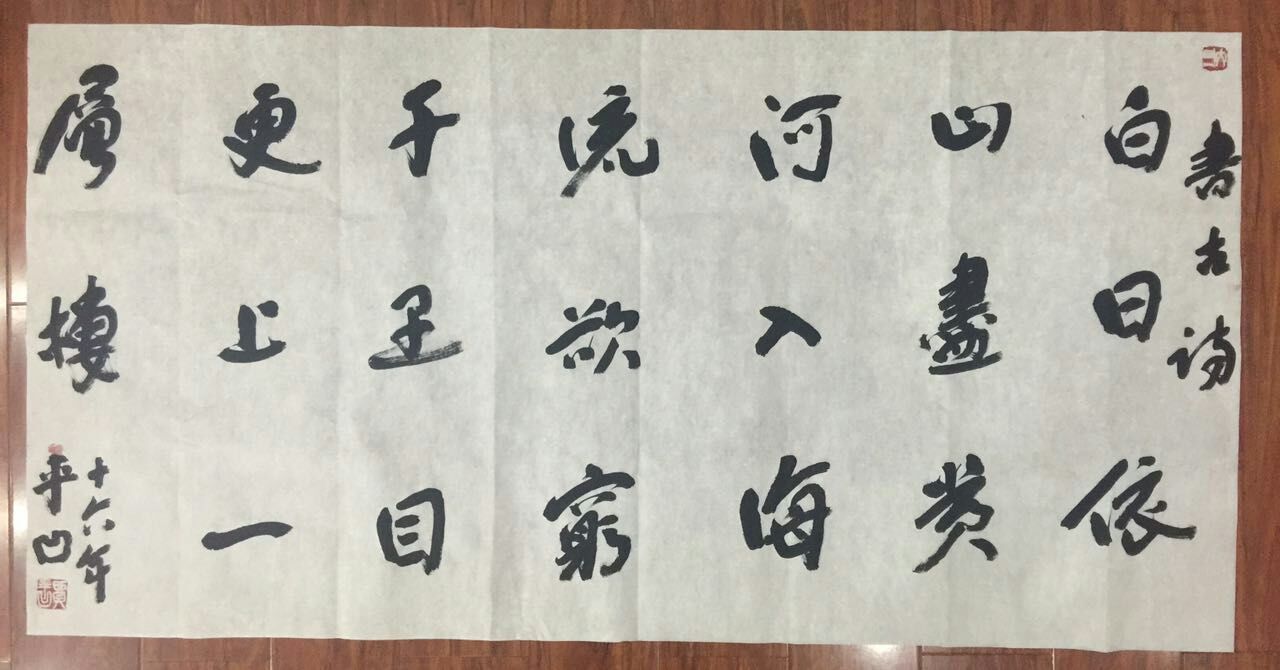 書古詩
白日依
山盡黄
河入海
流欲窮
千里目
更上一
層樓
十六年
平凹